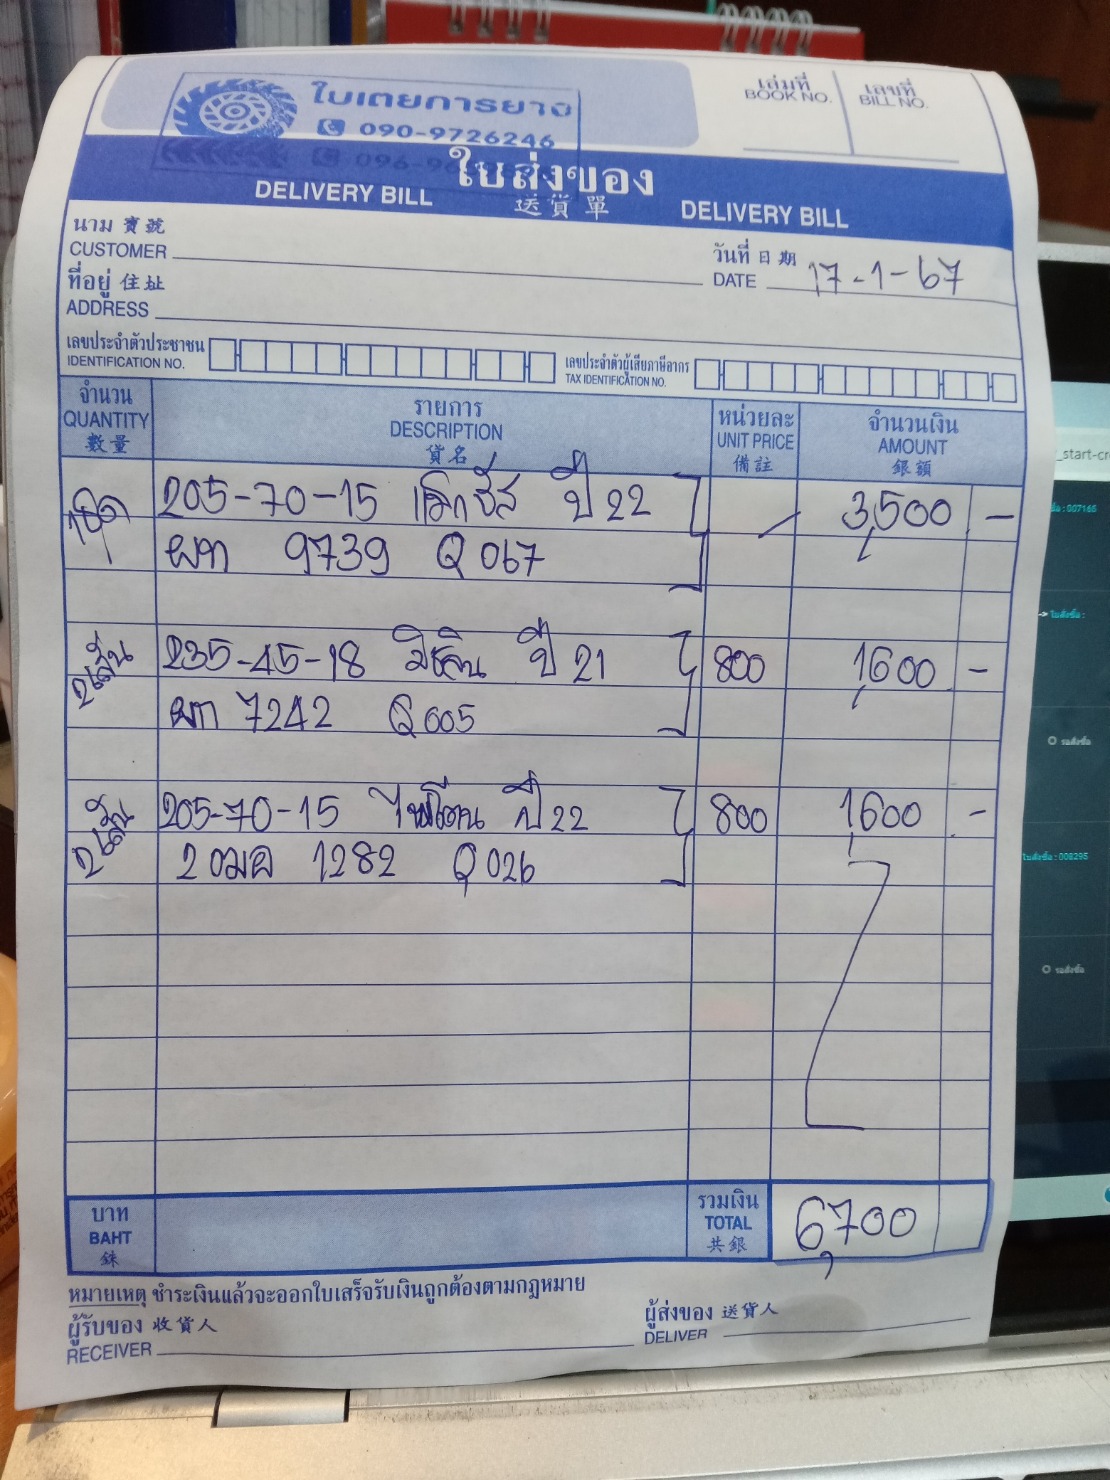 ใบเตยการยาง
090-9726246
เล่มที่
BOOK NO.
เลขที่
BILL NO.
ใบส่งของ
DELIVERY BILL 送貨單 DELIVERY BILL
นาม 寶號
CUSTOMER
วันที่ 日期
DATE 17-1-67
ที่อยู่ 住址
ADDRESS
เลขประจำตัวประชาชน
IDENTIFICATION NO.
เลขประจำตัวผู้เสียภาษีอากร
TAX IDENTIFICATION NO.
จำนวน
QUANTITY
數量
รายการ
DESCRIPTION
貨名
หน่วยละ
UNIT PRICE
備註
จำนวนเงิน
AMOUNT
銀額
1ชุด 205-70-15 แม็กซีส ปี 22 3,500 -
ผท 9739 Q 067
2เส้น 235-45-18 มิชลิน ปี 21 800 1,600 -
ผท 7242 Q 005
2เส้น 205-70-15 ปี 22 800 1,600 -
2 ฒฒ 1282 Q 026
บาท
BAHT
銖
รวมเงิน
TOTAL
共銀
6,700
หมายเหตุ ชำระเงินแล้วจะออกใบเสร็จรับเงินถูกต้องตามกฎหมาย
ผู้รับของ 收貨人
RECEIVER
ผู้ส่งของ 送貨人
DELIVER
_start-cr
: 007165
ใบสั่งซื้อ :
รอสั่งซื้อ
ใบสั่งซื้อ : 008295
รอสั่งซื้อ